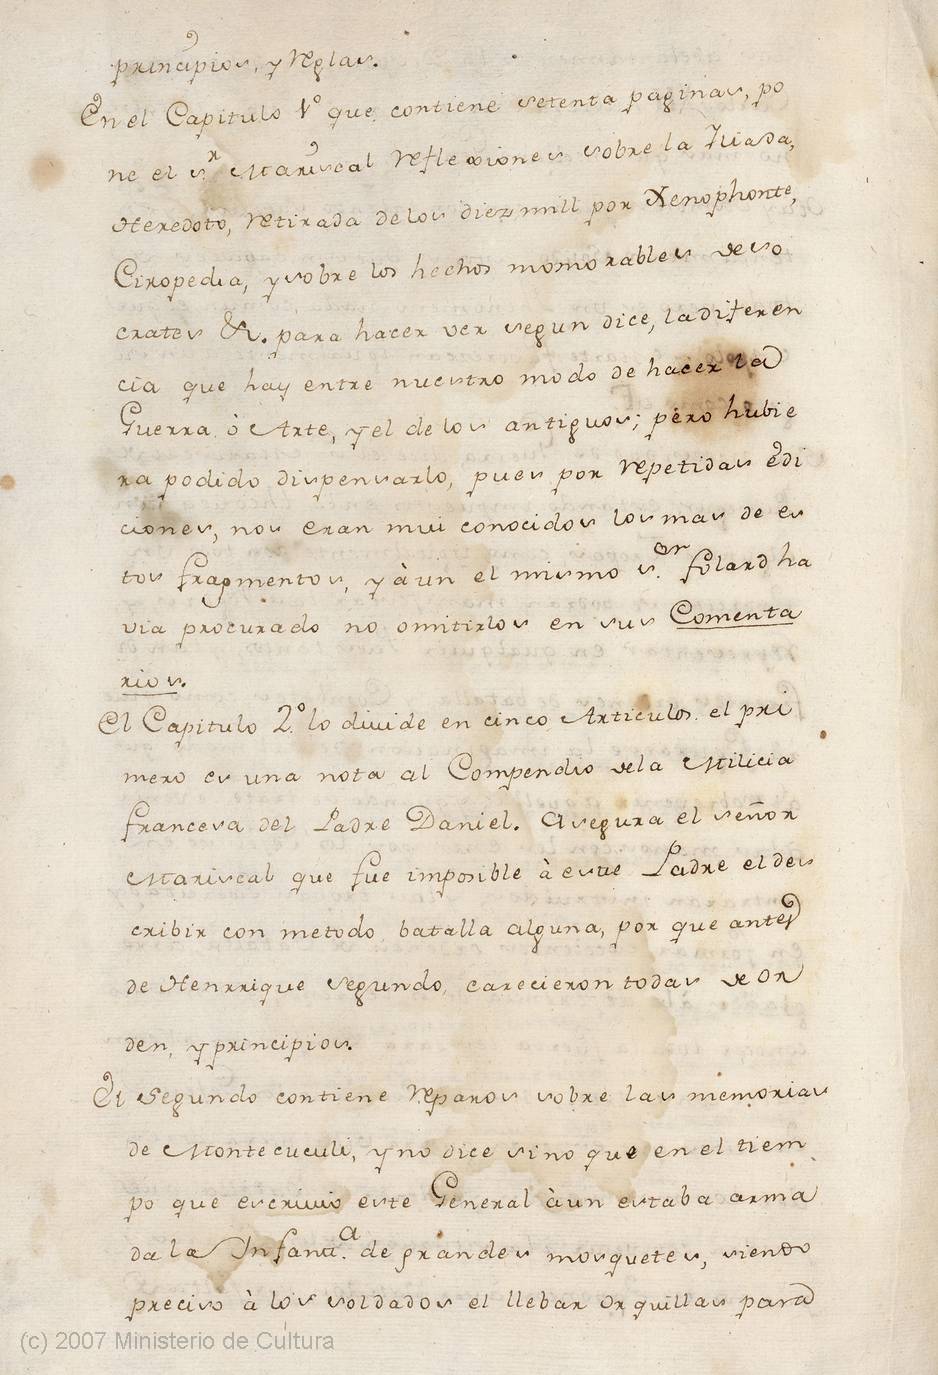 principios, y reglas.
En el Capitulo 1º que contiene setenta paginas, po
ne el s.r Mariscal reflexiones sobre la Iliada,
Heredoto, retirada de los diez mill por Xenophonte,
Ciropedia, y sobre los hechos momorables de So
crates &c. para hacer ver segun dice, la diferen
cia que hay entre nuestro modo de hacer la
Guerra ò Arte, y el de los antiguos; pero hubie
ra podido dispensarlo, pues por repetidas edi
ciones, nos eran mui conocidos los mas de es
tos fragmentos, y àun el mismo s.or folard ha
via procurado no omitirlos en sus Comenta
rios.
El Capitulo 2.º lo divide en cinco Articulos. el pri
mero es una nota al Compendio dela Milicia
francesa del Padre Daniel. Asegura el señor
Mariscal que fue imposible à este Padre el des
cribir con metodo batalla alguna, por que antes
de Henrrique segundo, carecieron todas de or
den, y principios.
El segundo contiene reparos sobre las memorias
de Montecuculi, y no dice sino que en el tiem
po que escrivio este General àun estaba arma
da la Infant.a de grandes mosquetes, siendo
preciso à los soldados el llebar orquillas para
(c) 2007 Ministerio de Cultura